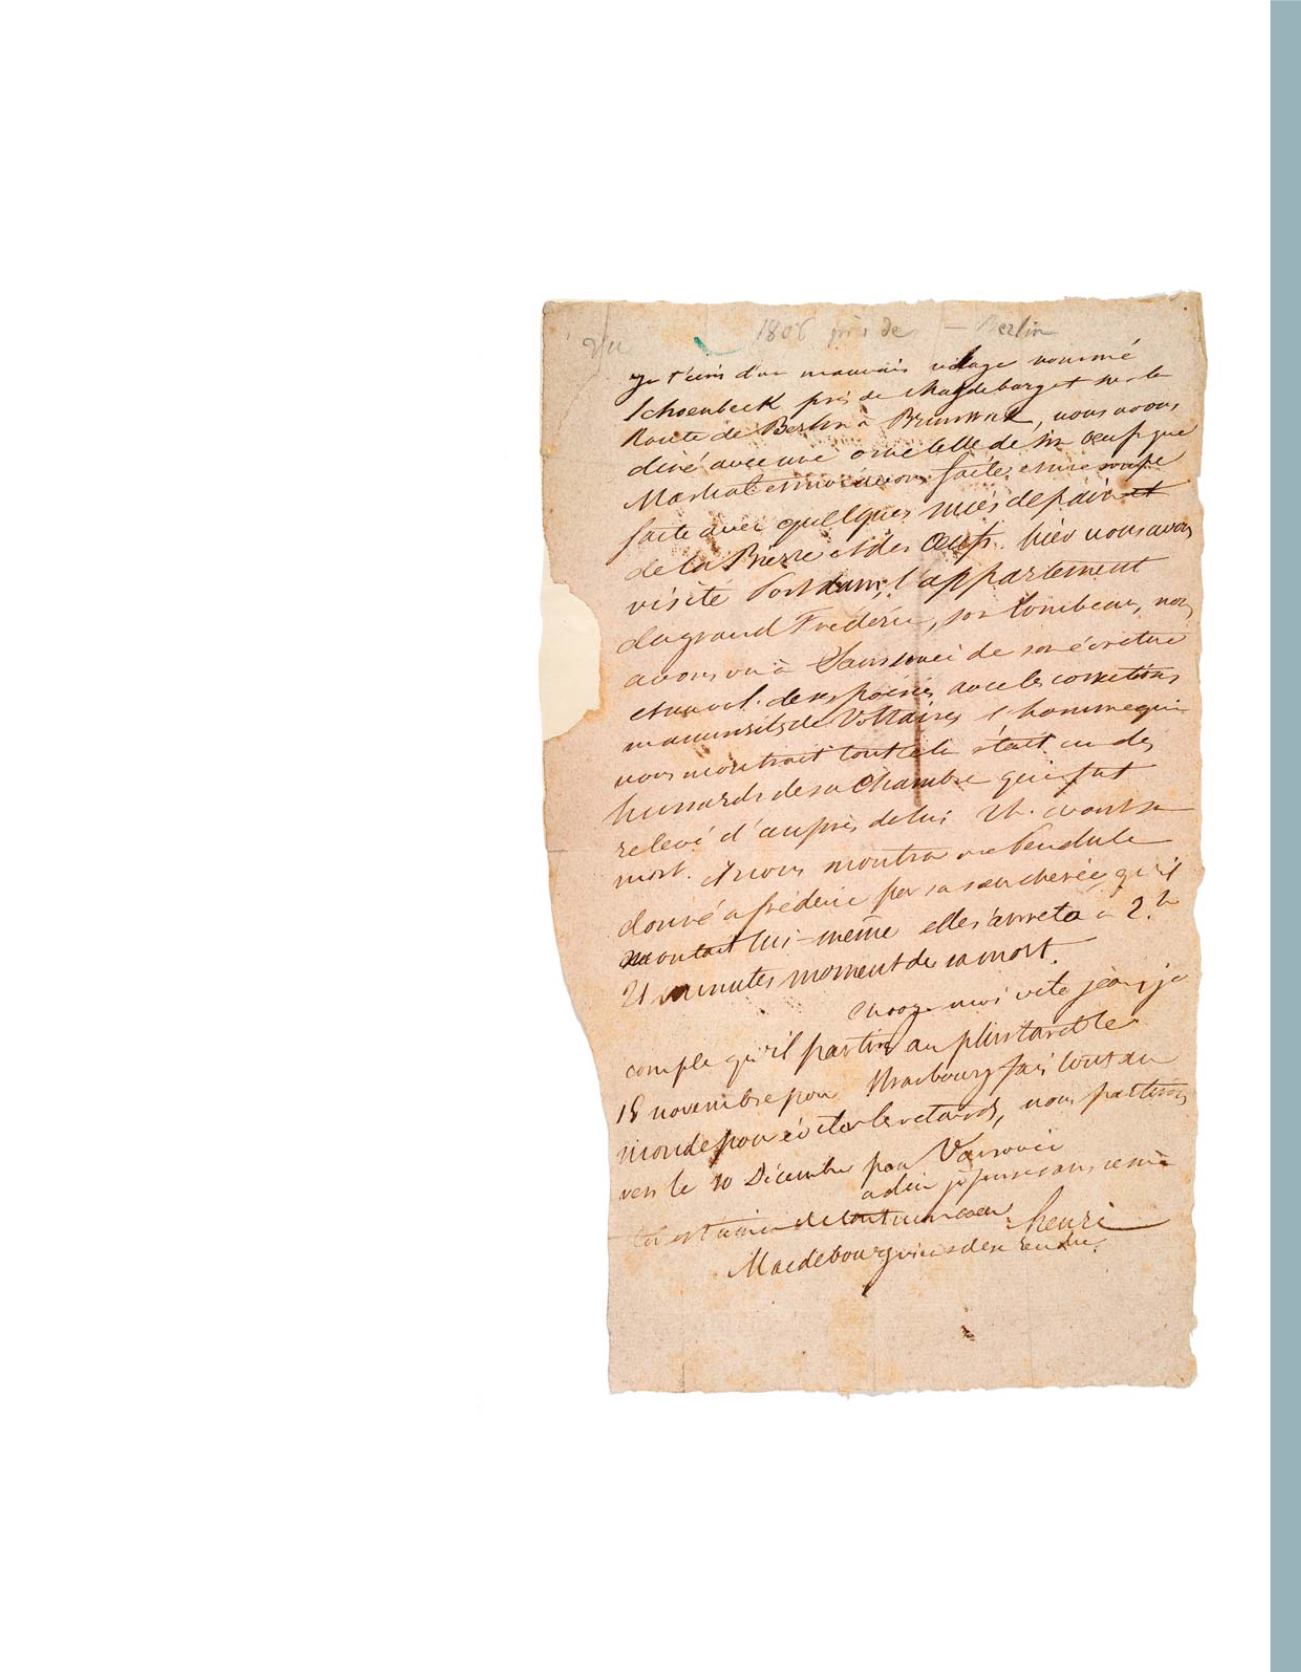 1806 près de — Berlin
Je t'écris d'un mauvais village nommé
Schoenbeck près de Magdebourg et sur la
Route de Berlin à Brunswick, nous avons
diné avec une omelette de six œufs que
Martial et moi avions faite, et une soupe
faite avec quelques mies de pain et
de la Bierre et des œufs. hier nous avons
visité Postdam, l'appartement
du grand Frédéric, son tombeau, nous
avons vu à Sanssouci de son écriture
et un vol. de ses poésies avec les corrections
manuscrits de Voltaire, l'homme qui
nous montrait tout cela était un des
hussards de sa Chambre qui fut
relevé d'auprès de lui 2h. avant sa
mort. Il nous montra une Pendule
donné a frédéric par sa sœur cherie, qu'il
montait lui-même elle s'arreta à 2.h
21 minutes moment de sa mort.
Envoye moi vite jean, je
compte qu'il partira au plus tard le
18 novembre pour Strasbourg fais tout au
monde pour éviter les retards, nous partirons
vers le 10 Décembre pour Varsovie
adieu je pense sans cesse à
toi et t'aime de tout mon cœur henri
Macdebourg vient de se rendre.